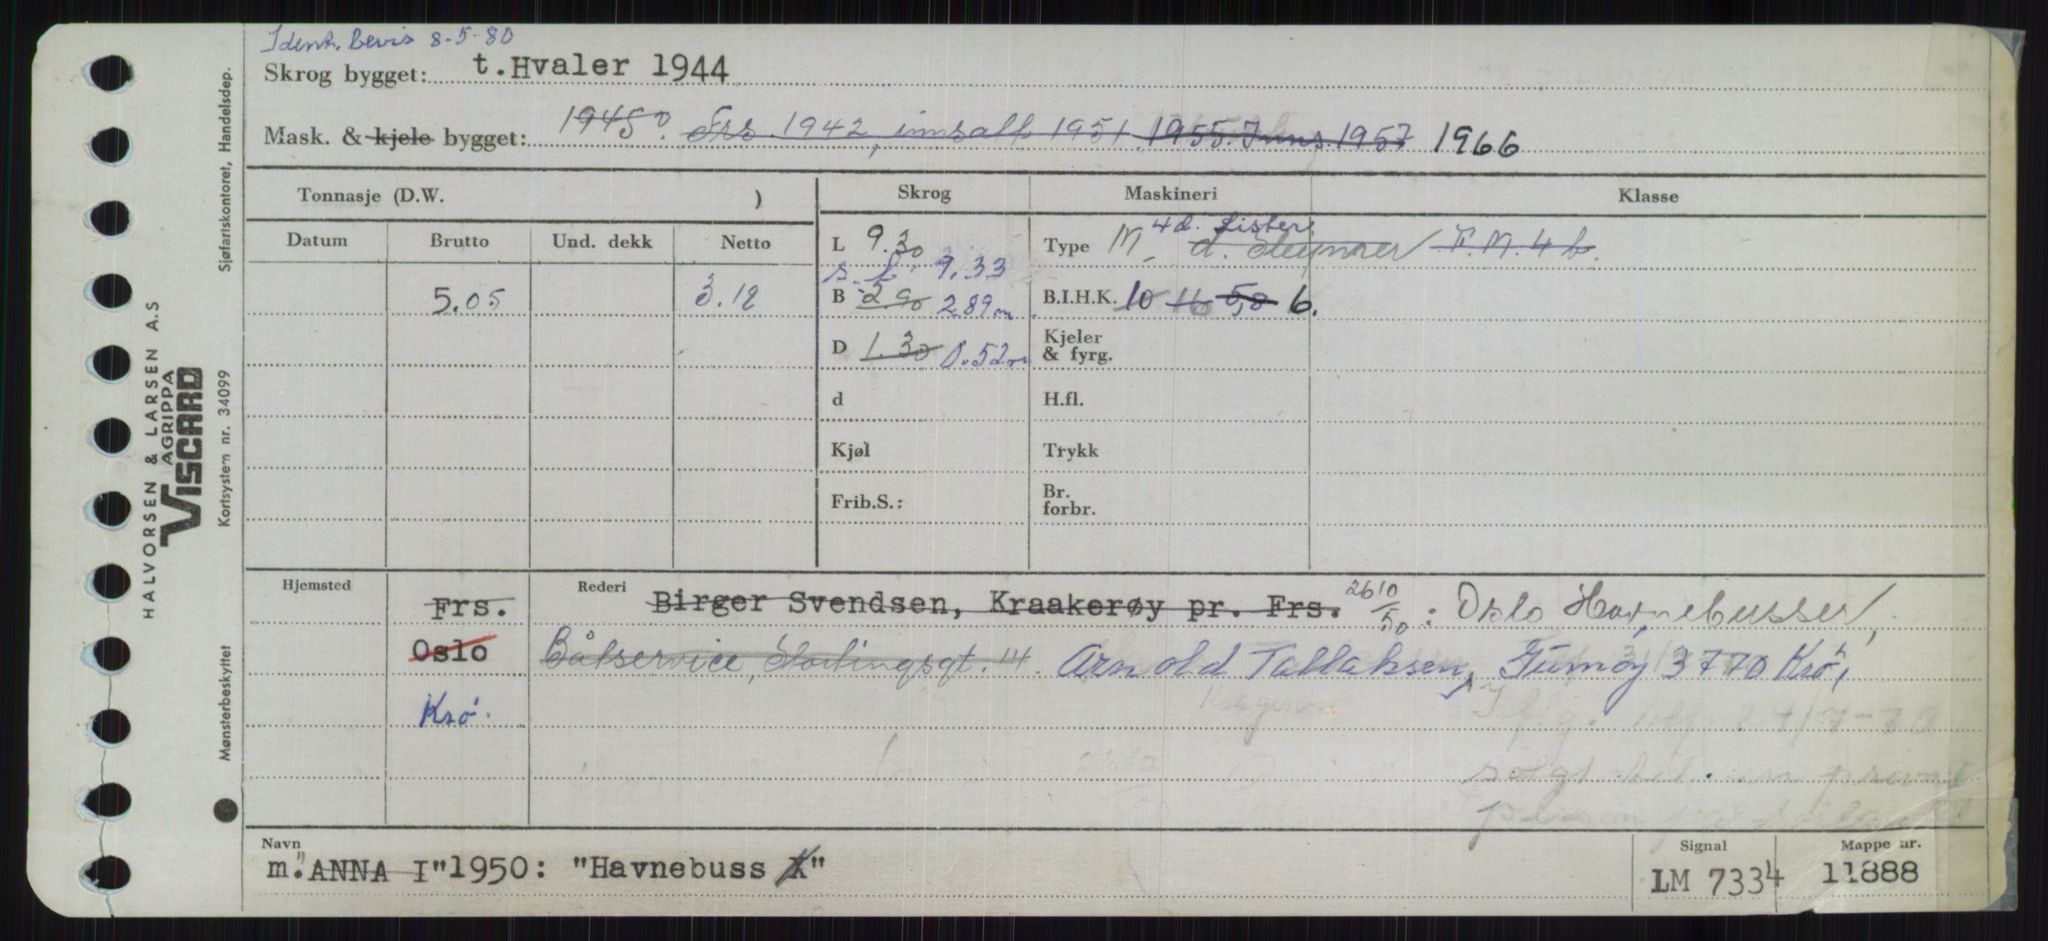 Ident. bevis 8-5-80
Skrog bygget: t.Hvaler 1944
Mask. & kjele bygget: 1945? Frs. 1942, innsatt 1951 1955. Inns. 1957 1966
Tonnasje (D.W. ) Skrog Maskineri Klasse
Datum Brutto Und. dekk Netto
5.05 3.12
L 9.30
s.l. 9.33
B 2.90 2.89 m
D 1.30 0.52 m
d
Kjøl
Frib.S.:
Type M. 4 d. Lister F.M. 4 b.
B.I.H.K. 10 16 5,8 6.
Kjeler
& fyrg.
H.fl.
Trykk
Br.
forbr.
Hjemsted Rederi
Frs. Birger Svendsen, Kraakerøy pr. Frs. 26/10 50: Oslo Havnebusser,
Oslo Båtservice, Stortingsgt. 14. Arnold Tallaksen, Gumøy 3770 Krø,
Krø. Kragerø
Iflg. 24/7-70
solgt til en privat
person på
Navn
m."ANNA I" 1950: "Havnebuss X"
Signal
LM 7334
Mappe nr.
11888
Sjøfartskontoret, Handelsdep.
Kortsystem nr. 34099
Mønsterbeskyttet
HALVORSEN & LARSEN A.S
AGRIPPA
VISCARD